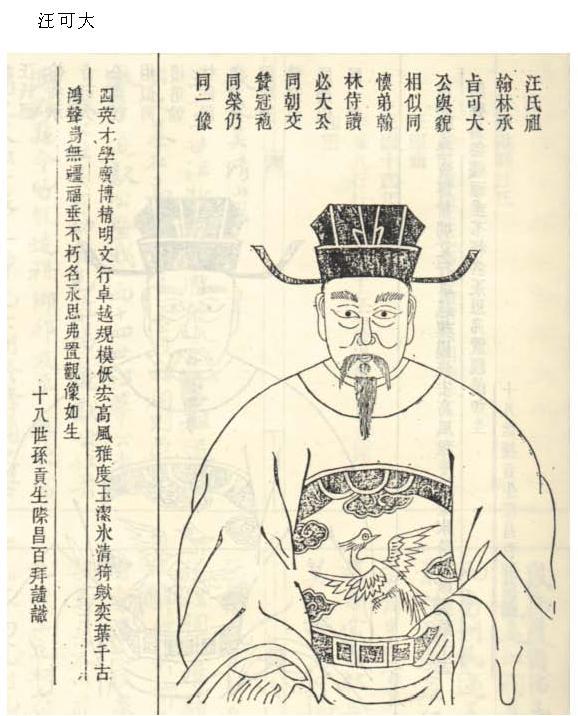 汪可大
汪氏祖
翰林承
旨可大
公與貌
相似同
懷弟翰
林侍讀
必大公
同朝交
贊冠袍
同榮仍
同一像
四英才學廣博精明文行卓越規模恢宏高風雅度玉潔氷清猗歟奕葉千古
鴻聲壽無疆福垂不朽名永思弗置觀像如生
十八世孫貢生際昌百拜謹識